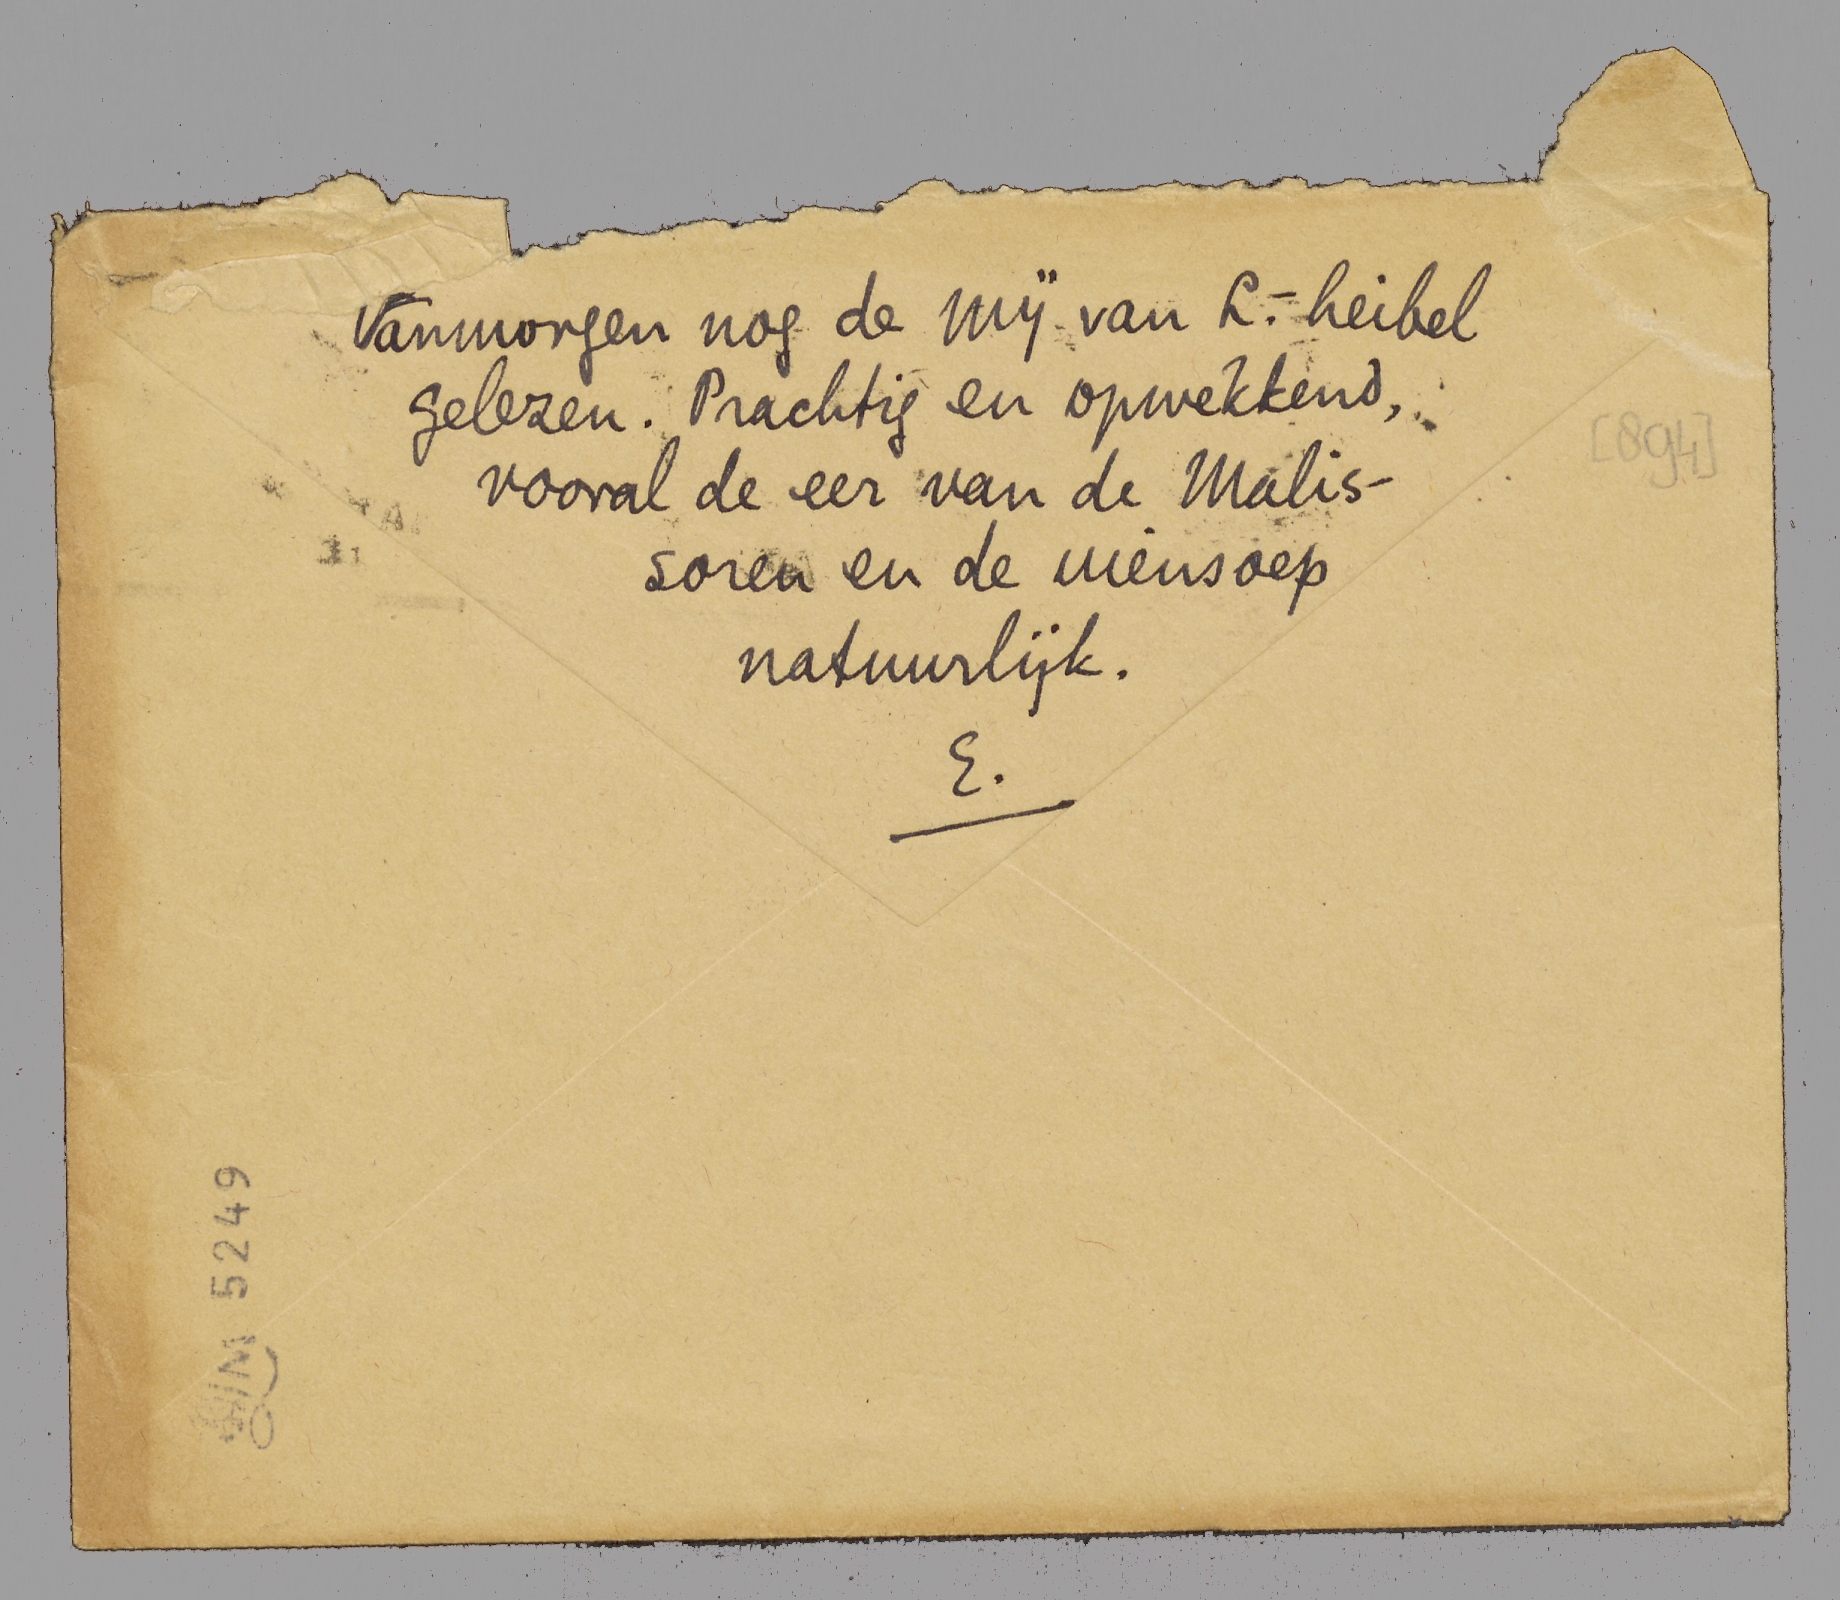 Vanmorgen nog de Mij van L.-heibel
gelezen. Prachtig en opwekkend,
vooral de eer van de Malis-
soren en de mensoep
natuurlijk.
E.
[894]
5249